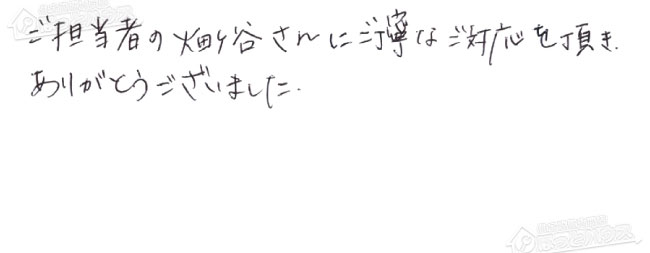 ご担当者の畑ヶ谷さんにご丁寧なご対応を頂き、
ありがとうございました。